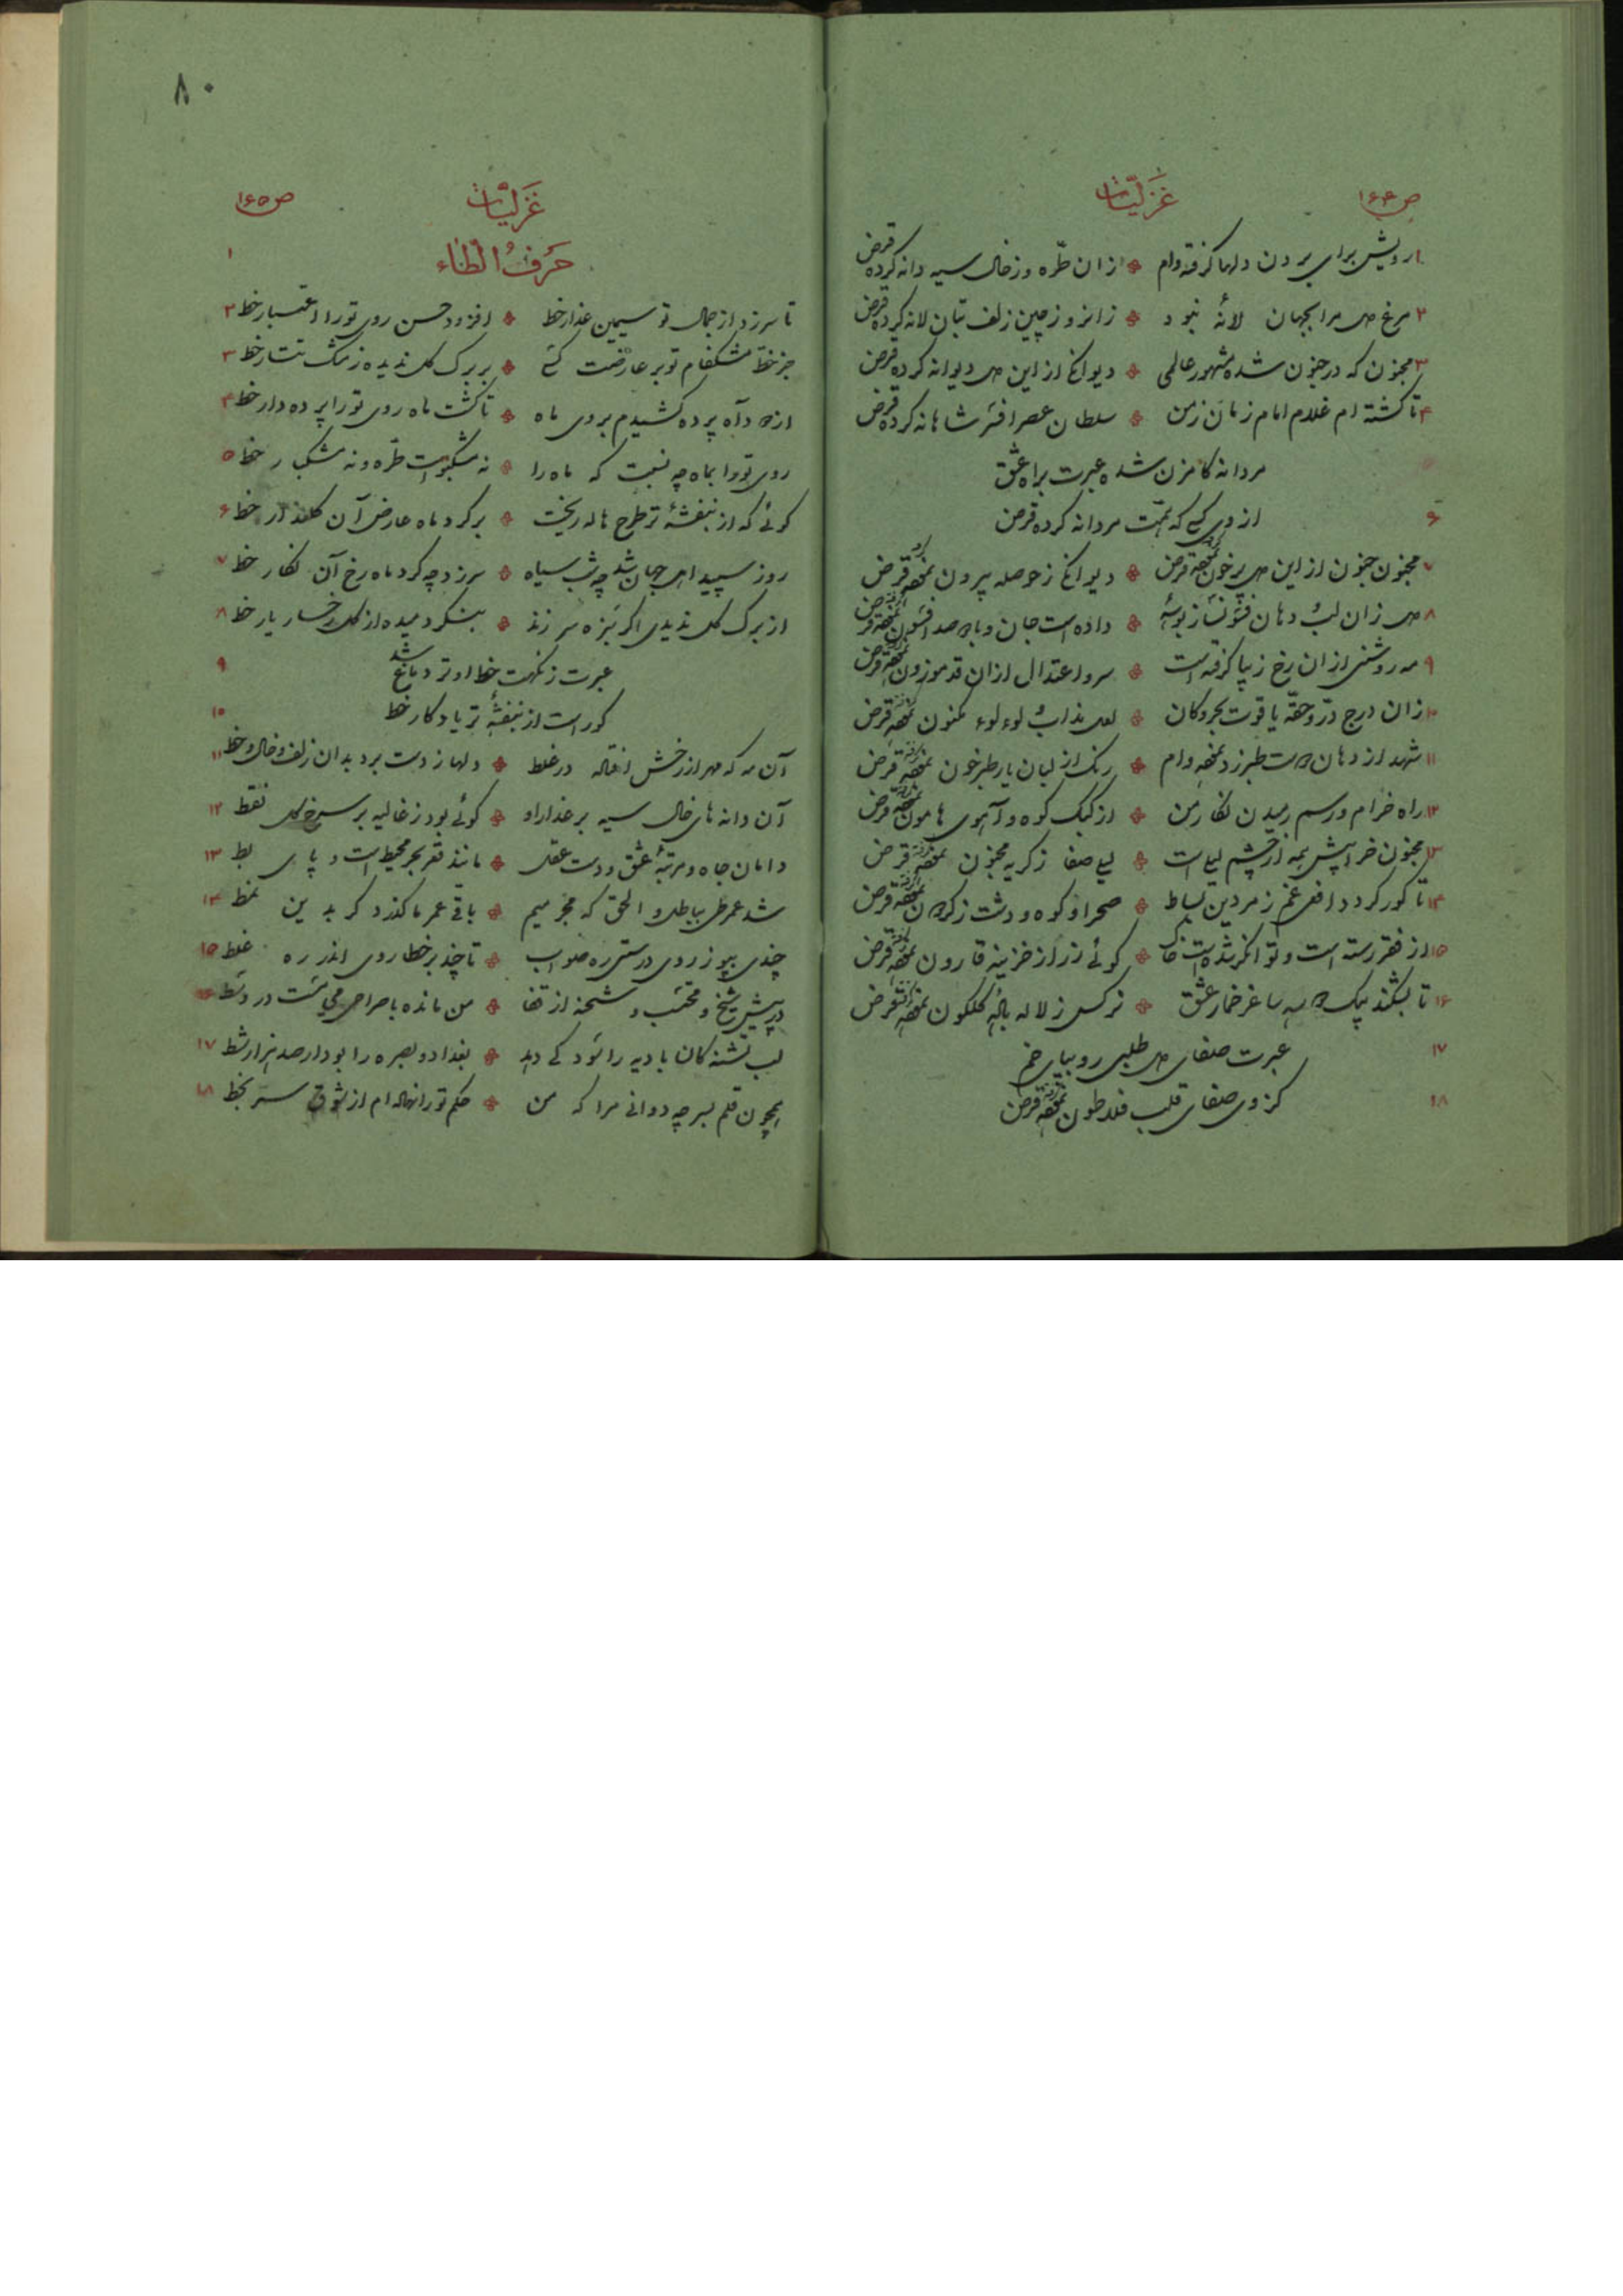 ص ۱۶۴
غَزَلیّات
۱ رویش برای بردن دلها گرفته وام ❖ از ان طرّه وز خال سیه دانه کرده قرض
۲ مرغ دل مرا بجهان لانهٔ نبود ❖ زانرو ز چین زلف بتان لانه کرده قرض
۳ مجنون که در جنون شده مشهور عالمی ❖ دیوانگی از این دل دیوانه کرده قرض
۴ تا گشته ام غلام امام زمان زمن ❖ سلطان عصر افسر شاهانه کرده قرض
۵ مردانه گامزن شده عبرت براه عشق
۶ از وی کسی که همّت مردانه کرده قرض
۷ مجنون جنون از این دل پرخون نموده قرض ❖ دیوانگی ز حوصله بیرون نموده قرض
۸ دل زان لب و دهان فسونساز بوسهٔ ❖ داده است جان و با صد افسون نموده قرض
۹ مه روشنی از ان رخ زیبا گرفته است ❖ سرو اعتدال از ان قد موزون نموده قرض
۱۰ زان درج درّ و حقّه یاقوت بحر و کان ❖ لعل مذاب و لوءلوء مکنون نموده قرض
۱۱ شهد از دهان طبرزد نموده وام ❖ رنگ از لبان یار طبرخون نموده قرض
۱۲ راه خرام و رسم رمیدن نگار من ❖ از کبک کوه و آهوی هامون نموده قرض
۱۳ مجنون خرابیش همه از چشم لیلی است ❖ لیلی صفا ز گریه مجنون نموده قرض
۱۴ تا کور گردد افعی غم زمردین بساط ❖ صحرا و کوه و دشت ز نموده قرض
۱۵ از فقر رسته است و توانگر شده است خاک ❖ گوئی زر از خزینه قارون نموده قرض
۱۶ تا بشکند بیک سه ساغر خمار عشق ❖ نرگس ز لاله بادهٔ گلگون نموده قرض
۱۷ عبرت صفای دل طلبی رو بپای خم
۱۸ کز وی صفای قلب فلاطون نموده قرض
۸۰
ص ۱۶۵
غَزَلیّات
۱ حَرفُ الطّاء
تا سر زد از جمال تو سیمین عذار خط ❖ افزود حسن روی تو را اعتبار خط ۲
جز خطّ مشکفام تو بر عارضت کسی ❖ بر برگ گل ندیده ز مشک تتار خط ۳
از دود آه پرده کشیدم بروی ماه ❖ تا گشت ماه روی تو را پرده دار خط ۴
روی تو را بماه چه نسبت که ماه را ❖ نه مشکبوست طرّه و نه مشکبار خط ۵
گوئی که از بنفشهٔ تر طرح هاله ریخت ❖ بر گرد ماه عارض آن گلعذار خط ۶
روز سپید اهل جهان شد چه شب سیاه ❖ سر زد چه گرد ماه رخ آن نگار خط ۷
از برگ گل ندیدی اگر سبزه سر زند ❖ بنگر دمیده از گل رخسار یار خط ۸
عبرت ز نکهت خط او تر دماغ شد ۹
کو راست از بنفشهٔ تر یادگار خط ۱۰
آن مه که مهر از رخش افتاده در غلط ❖ دلها ز دست برد بدان زلف و خال و خط ۱۱
آن دانه های خال سیه بر عذار او ❖ گوئی بود ز غالیه بر سرخ گل نقط ۱۲
دامان جاه و مرتبهٔ عشق و دست عقل ❖ مانند قعر بحر محیط است و پای بط ۱۳
شد عمر طی بباطل و الحق که مجرمیم ❖ باقی عمر ما گذرد گر بدین نمط ۱۴
چندی بپو ز روی درستی ره صواب ❖ تا چند بر خطا روی اندر ره غلط ۱۵
در پیش شیخ و محتسب و شحنه از قفا ❖ من مانده با صراحی می مست در وسط ۱۶
لب تشنگان بادیه را سود کی دهد ❖ بغداد و بصره را بود ار صد هزار شط ۱۷
همچون قلم بسر چه دوانی مرا که من ❖ حکم تو را نهاده ام از شوق سر بخط ۱۸